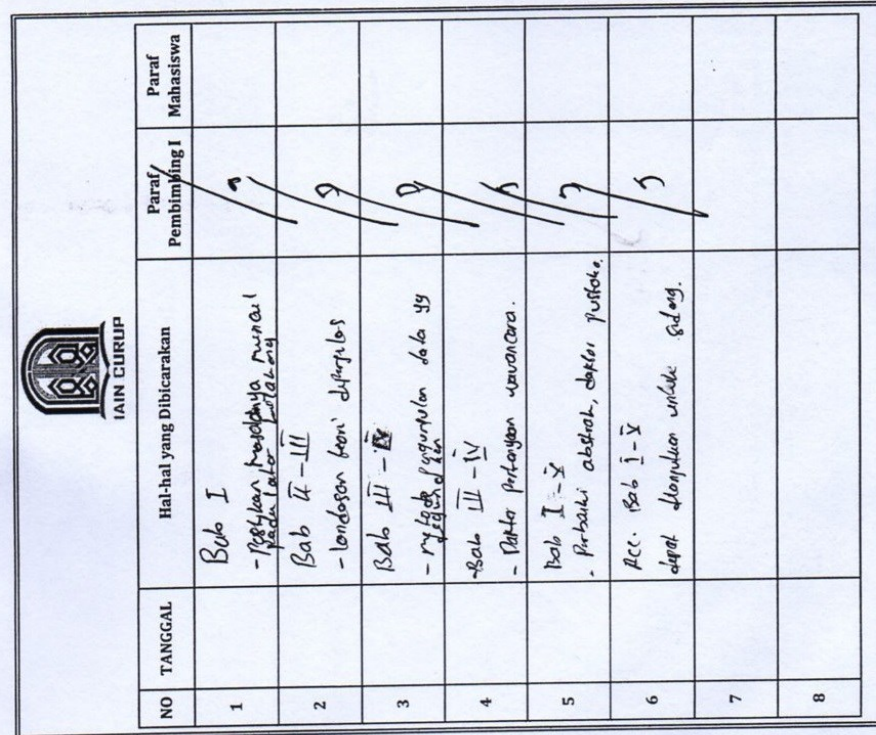 IAIN CURUP
NO TANGGAL Hal-hal yang Dibicarakan Paraf Pembimbing I Paraf Mahasiswa
1 Bab I
- masalahnya
pada latar belakang
2 Bab II - III
- landasan teori diperjelas
3 Bab III - IV
- metode pengumpulan data yg
digunakan
4 Bab III - IV
- Daftar pertanyaan wawancara.
5 Bab I - V
- Perbaiki abstrak, daftar pustaka.
6 Acc. Bab I - V
dapat dilanjutkan untuk sidang.
7
8